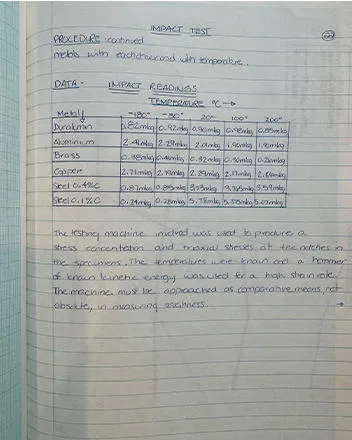 IMPACT TEST
PROCEDURE continued
metals with eachother and with temperature.
DATA - IMPACT READINGS
TEMPERATURE °C →
Metal -180° -80° 20° 100° 200°
Duralumin 0.82mkg 0.92mkg 0.90mkg 0.98mkg 0.85mkg
Aluminium 2.41mkg 2.29mkg 2.01mkg 1.96mkg
Brass 0.32mkg
Copper 2.71mkg 2.79mkg 2.29mkg 2.17mkg
Steel 0.4%C 0.87mkg 0.85mkg 3.59mkg
Steel 0.1%C 0.24mkg 0.28mkg 5.78mkg 5.03mkg
The testing machine involved was used to produce a
stress concentration and triaxial stresses at the notches in
the specimens. The temperatures were known and a hammer
of known kinetic energy was used for a high strain rate.
The machine must be approached as comparative means, not
absolute, in measuring
→